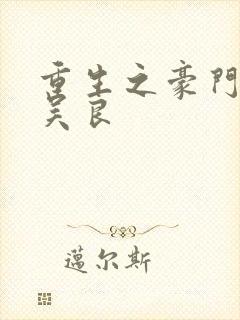 重生之豪門
吴良
邁尔斯